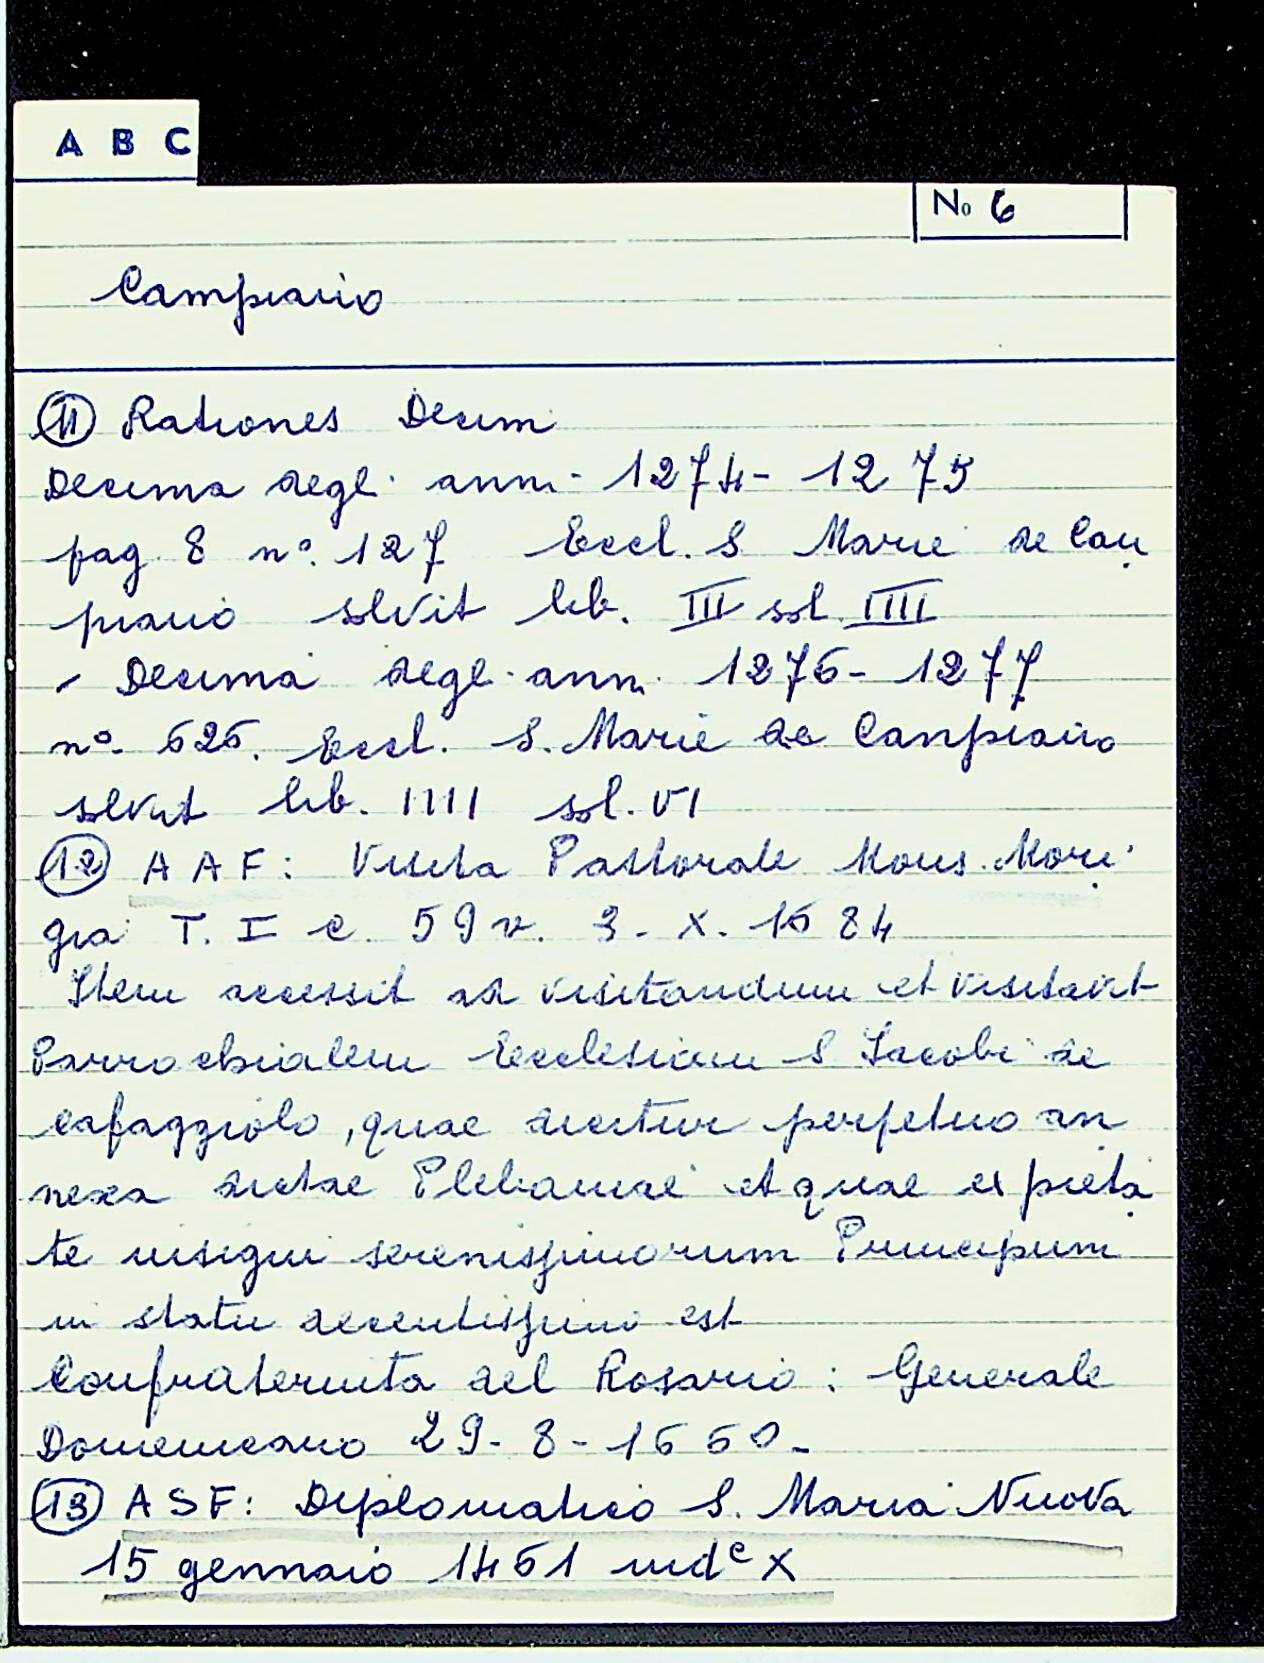 A B C
No 6
Campiano
11 Rationes Decim
Decima degl. ann. 1274-1275
pag. 8 n°. 127 Eccl. S Marie de Can
piano solvit lib. III sol. IIII
- Decima degl. ann. 1276-1277
n°. 626. Eccl. S. Marie de Canpiano
solvit lib. IIII sol. VI
12 AAF: Visita Pastorale Mons. Mori
gia T. I c. 59v. 3-X-1684
Item accessit ad visitandum et visitavit
Parrochialem Ecclesiam S Iacobi de
Cafaggiolo, quae dicitur perpetuo an
nexa dictae Plebaniae et quae ex pieta
te insigni serenissimorum Principum
in statu decentissimo est
Confraternita del Rosario: Generale
Domenicano 29-8-1660-
13 ASF: Diplomatico S. Maria Nuova
15 gennaio 1461 indc X